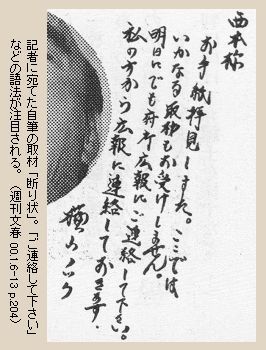 西本様
お手紙拝見しました。ここでは
いかなる取材もお受けしません。
明日にでも府庁広報にご連絡して下さい。
私の方から広報に連絡しておきます。
横山ノック
記者に宛てた自筆の取材「断り状」。「ご連絡して下さい」
などの語法が注目される。〈週刊文春 00.1.6-13 p204〉